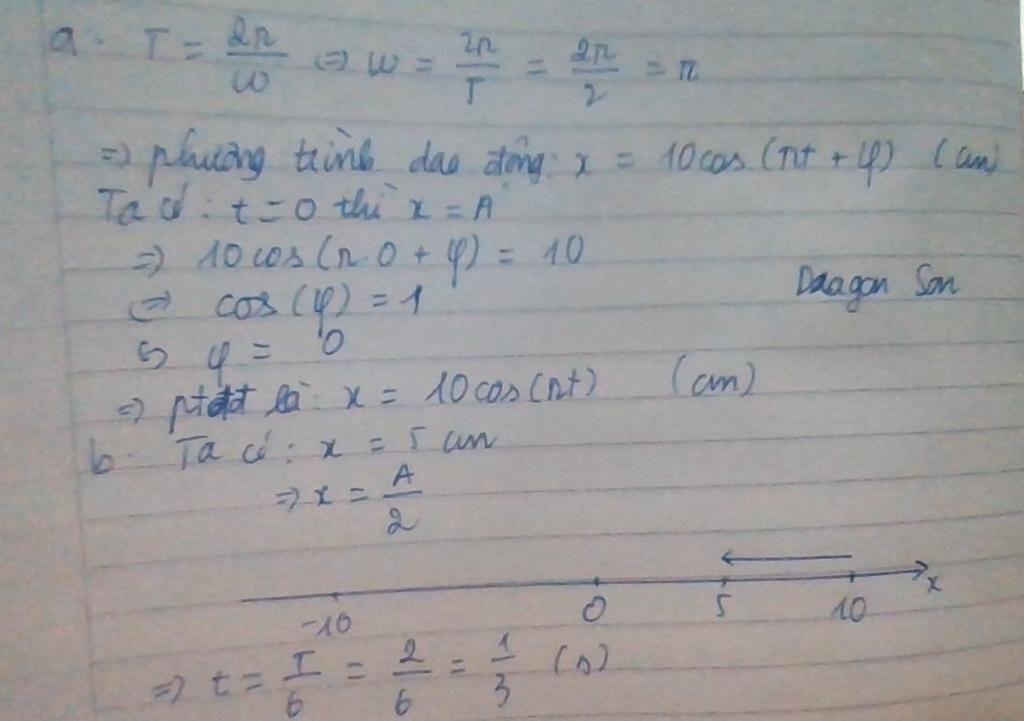 a. T = 2π/ω => ω = 2π/T = 2π/2 = π
=> phương trình dao động: x = 10cos(πt + φ) (cm)
Ta có: t = 0 thì x = A
=> 10cos(π.0 + φ) = 10
<=> cos(φ) = 1
Daagon Son
<=> φ = 0
=> ptdđ là: x = 10cos(πt) (cm)
b. Ta có: x = 5 cm
=> x = A/2
-10 0 5 10 x
=> t = T/6 = 2/6 = 1/3 (s)